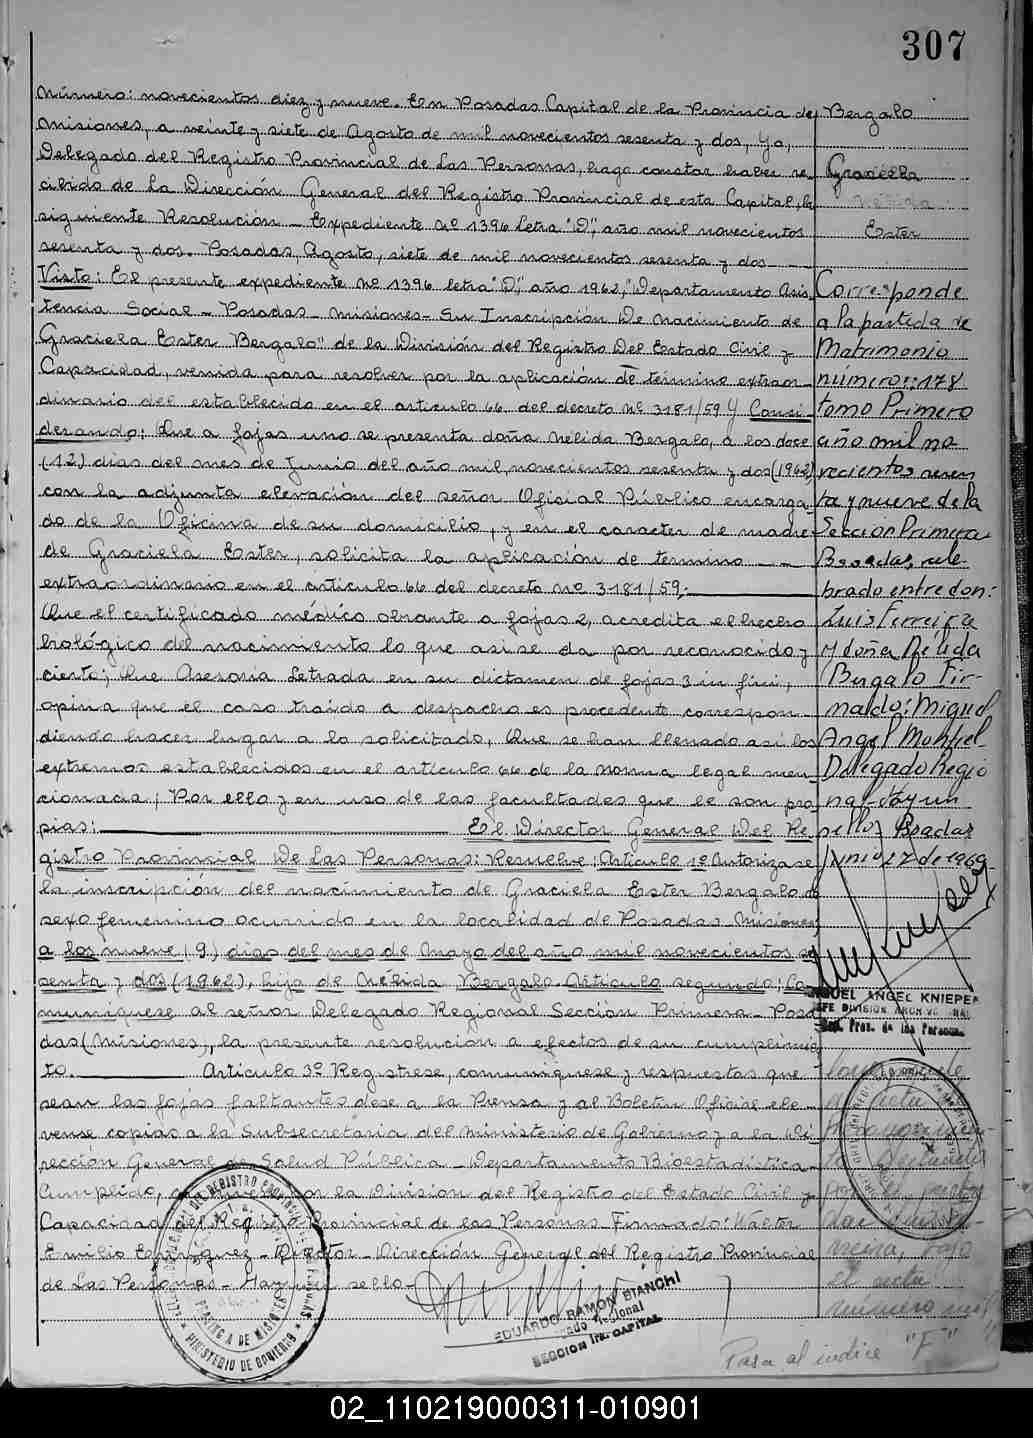 307
Número: novecientos diez y nueve. En Posadas Capital de la Provincia de
Misiones, a veinte y siete de Agosto de mil novecientos sesenta y dos, Yo,
Delegado del Registro Provincial de Las Personas, hago constar haber re-
cibido de La Dirección General del Registro Provincial de esta Capital, la
siguiente Resolución - Expediente Nº 1396 letra "D", año mil novecientos
sesenta y dos. Posadas, Agosto, siete de mil novecientos sesenta y dos
Visto: El presente expediente Nº 1396 letra "D", año 1962, "Departamento Asis
tencia Social - Posadas - Misiones - Su Inscripción De Nacimiento de
Graciela Ester Bergalo" de la División del Registro Del Estado Civil y
Capacidad, venida para resolver por la aplicación de término extraor-
dinario del establecido en el artículo 66 del decreto nº 3181/59 y Consi-
derando: Que a fojas uno se presenta doña Nélida Bergalo, a los doce
(12) días del mes de Junio del año mil novecientos sesenta y dos (1962)
con la adjunta elevación del señor Oficial Público encarga
do de la Oficina de su domicilio, y en el caracter de madre
de Graciela Ester, solicita la aplicación de término
extraordinario en el artículo 66 del decreto nº 3181/59.
Que el certificado médico obrante a fojas 2, acredita el hecho
biológico del nacimiento lo que asi se da por reconocido y
cierto; Que Asesoria Letrada en su dictamen de fojas 3 in fini,
opina que el caso traido a despacho es procedente correspon-
diendo hacer lugar a lo solicitado, Que se han llenado asi los
extremos establecidos en el artículo 66 de la norma legal men-
cionada; Por ello y en uso de las facultades que le son pro
pias: El Director General Del Re
gistro Provincial De Las Personas: Resuelve: Artículo 1º Autorizase
la inscripción del nacimiento de Graciela Ester Bergalo de
sexo femenino ocurrido en la localidad de Posadas Misiones
a los nueve (9) días del mes de Mayo del año mil novecientos se
senta y dos (1962), hija de Nélida Bergalo. Artículo segundo: Co
muníquese al señor Delegado Regional Sección Primera - Posa
das (Misiones), la presente resolución a efectos de su cumplimie
to. Artículo 3º Regístrese, comuníquese y respuestas que
sean las fojas faltantes dese a la Prensa y al Boletín Oficial ele
vense copias a la Subsecretaria del Ministerio de Gobierno y a la Di
rección General de Salud Pública - Departamento Bioestadística -
Cumplido, por la División del Registro del Estado Civil y
Capacidad del Registro Provincial de las Personas Firmado: Walter
Emilio Director - Dirección General del Registro Provincial
de Las Personas - Hay un sello -
Bergalo
Graciella
Nélida
Ester
Corresponde
a la partida de
Matrimonio
número: 178
tomo Primero
año mil no
vecientos sesen
ta y nueve de la
Sección Primera
Posadas, cele-
brado entre don:
Luis Ferreira
y doña Nélida
Bergalo Fir-
mado: Miguel
Angel Montiel
Delegado Regio
nal - Hay un
sello) Posadas
Junio 27 de 1969
MIGUEL ANGEL KNIEPER
JEFE DIVISION ARCHIVO GRAL.
Reg. Prov. de las Personas
acta
reconocimien-
to
por el
el acta
número mil
EDUARDO RAMON BIANCHI
Delegado Regional
SECCION 1ra. CAPITAL
PROVINCIA DE MISIONES
MINISTERIO DE GOBIERNO
Pasa al indice "F"
02_110219000311-010901